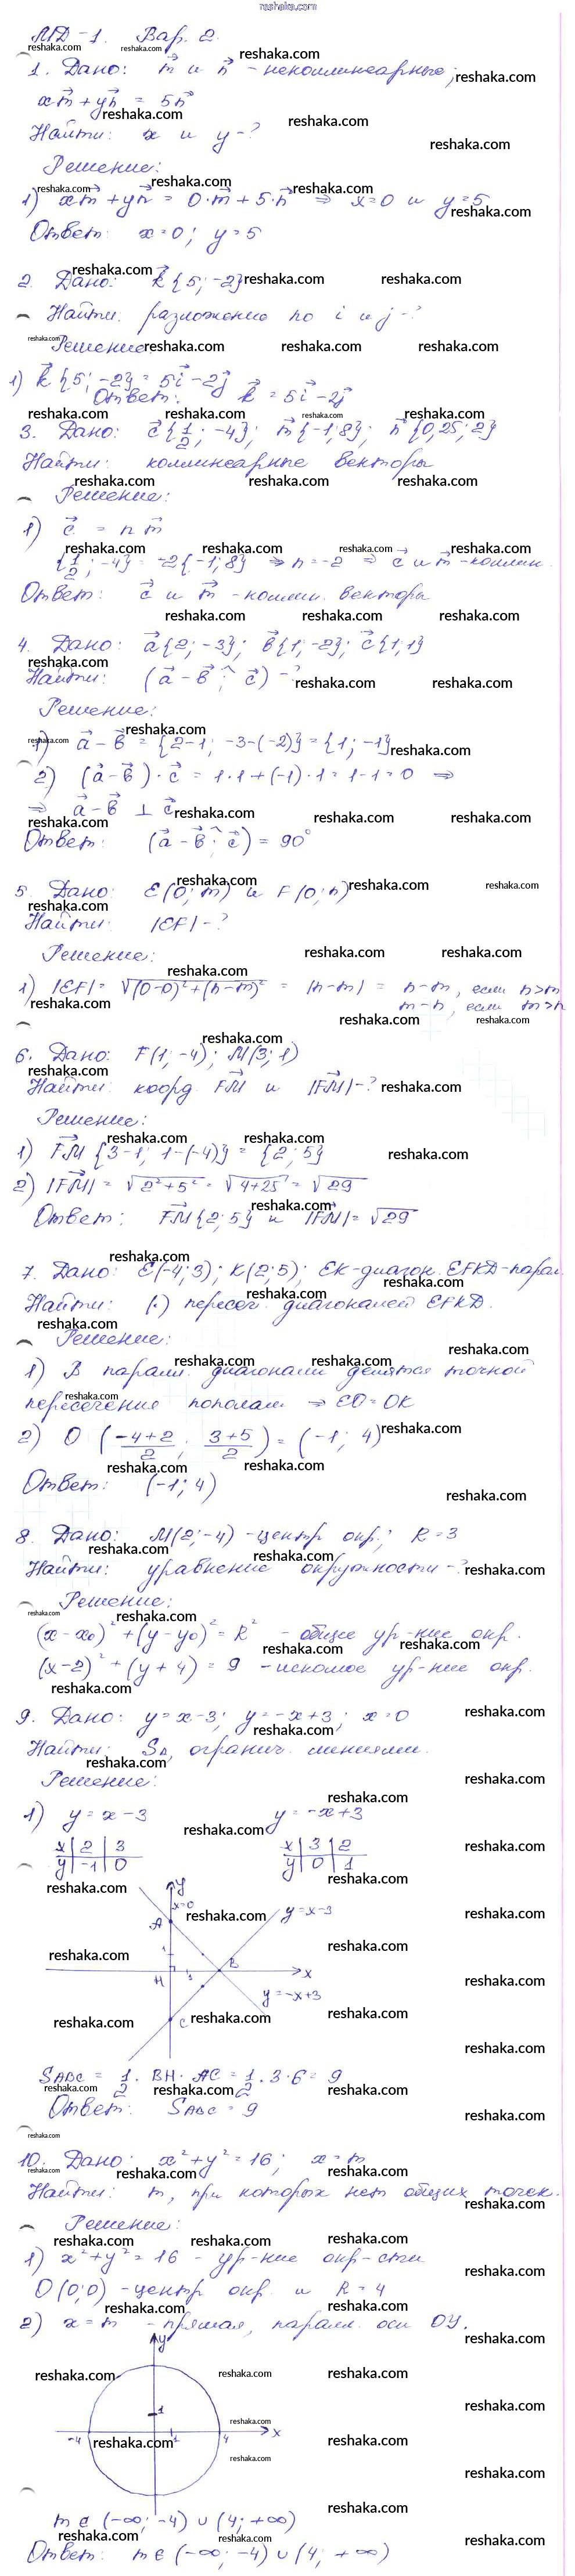 reshaka.com
МД-1. Вар. 2.
1. Дано: m и n - неколлинеарные;
xm + yn = 5n
Найти: x и y - ?
Решение:
1) xm + yn = 0·m + 5·n ⇒ x=0 и y=5
Ответ: x=0; y=5
2. Дано: k{5; -2}
Найти: разложение по i и j - ?
Решение:
1) k{5; -2} = 5i - 2j
Ответ: k = 5i - 2j
3. Дано: c{1/2; -4}; m{-1; 8}; n{0,25; 2}
Найти: коллинеарные векторы
Решение:
1) c = n m
{1/2; -4} = -2{-1; 8} ⇒ n = -2 ⇒ c и m - коллин.
Ответ: c и m - коллин. векторы
4. Дано: a{2; -3}; b{1; -2}; c{1; 1}
Найти: (a - b ^ c) - ?
Решение:
1) a - b = {2-1; -3-(-2)} = {1; -1}
2) (a - b) · c = 1·1 + (-1)·1 = 1-1 = 0 ⇒
⇒ a - b ⊥ c
Ответ: (a - b ^ c) = 90°
5. Дано: E(0; m) и F(0; n)
Найти: |EF| - ?
Решение:
1) |EF| = √((0-0)² + (n-m)²) = |n-m| = n-m, если n>m
m-n, если m>n
6. Дано: F(1; -4); M(3; 1)
Найти: коорд. FM и |FM| - ?
Решение:
1) FM {3-1; 1-(-4)} = {2; 5}
2) |FM| = √(2²+5²) = √(4+25) = √29
Ответ: FM{2; 5} и |FM| = √29
7. Дано: E(-4; 3); K(2; 5); EK-диагон. EFKD-парал.
Найти: (·) пересеч. диагоналей EFKD.
Решение:
1) В паралл. диагонали делятся точкой
пересечения пополам ⇒ EO = OK
2) O ((-4+2)/2; (3+5)/2) = (-1; 4)
Ответ: (-1; 4)
8. Дано: M(2; -4) - центр окр.; R = 3
Найти: уравнение окружности - ?
Решение:
(x - x₀)² + (y - y₀)² = R² - общее ур-ние окр.
(x-2)² + (y+4) = 9 - искомое ур-ние окр.
9. Дано: y = x-3; y = -x+3; x=0
Найти: S△, огранич. линиями.
Решение:
1) y = x-3 y = -x+3
x | 2 | 3 x | 3 | 2
y | -1 | 0 y | 0 | 1
y
x=0
A
y = x-3
1
B
H 1 x
y = -x+3
C
SABC = 1/2 · BH · AC = 1/2 · 3 · 6 = 9
Ответ: SABC = 9
10. Дано: x² + y² = 16; x = m
Найти: m, при которых нет общих точек.
Решение:
1) x² + y² = 16 - ур-ние окр-сти
O(0; 0) - центр окр. и R = 4
2) x = m - прямая, паралл. оси OY.
y
1
-4 1 4 x
m ∈ (-∞; -4) ∪ (4; +∞)
Ответ: m ∈ (-∞; -4) ∪ (4; +∞)